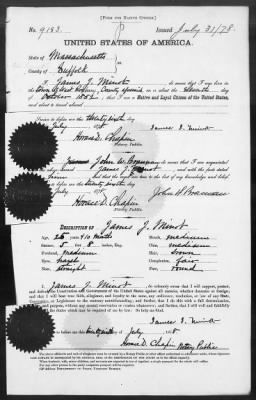 [FORM FOR NATIVE CITIZEN.]
No. 9183. Issued July 31/78.
UNITED STATES OF AMERICA.
State of Massachusetts
County of Suffolk
I, James J. Minot, do swear that I was born in
the town of West Roxbury, County aforesaid, on or about the eleventh day
of October 1852; that I am a Native and Loyal Citizen of the United States,
and about to travel abroad
Sworn to before me this twenty sixth day
of July, 1878 James J. Minot
Horace D. Chapin
Notary Public.
I, John W. Brannan, do swear that I am acquainted
with the above-named James J. Minot, and with the facts
and that the same is true to the best of my knowledge and belief.
Sworn to before me this twenty sixth day
of July, 1878 John W. Brannan
Horace D. Chapin
Notary Public.
DESCRIPTION OF James J. Minot
Age, 25 y 10 months Mouth, medium
Stature, 5 feet 8 inches, Eng. Chin, medium
Forehead, medium Hair, brown
Eyes, hazel Complexion, fair
Nose, straight Face, round
I, James J. Minot, do solemnly swear that I will support, protect,
and defend the Constitution and Government of the United States against all enemies, whether domestic or foreign;
and that I will bear true faith, allegiance, and loyalty to the same, any ordinance, resolution, or law of any State,
Convention, or Legislature to the contrary notwithstanding; and further, that I do this with a full determination,
So help me God.
James J. Minot
Sworn to before me this day of July, 1878
Horace D. Chapin Notary Public